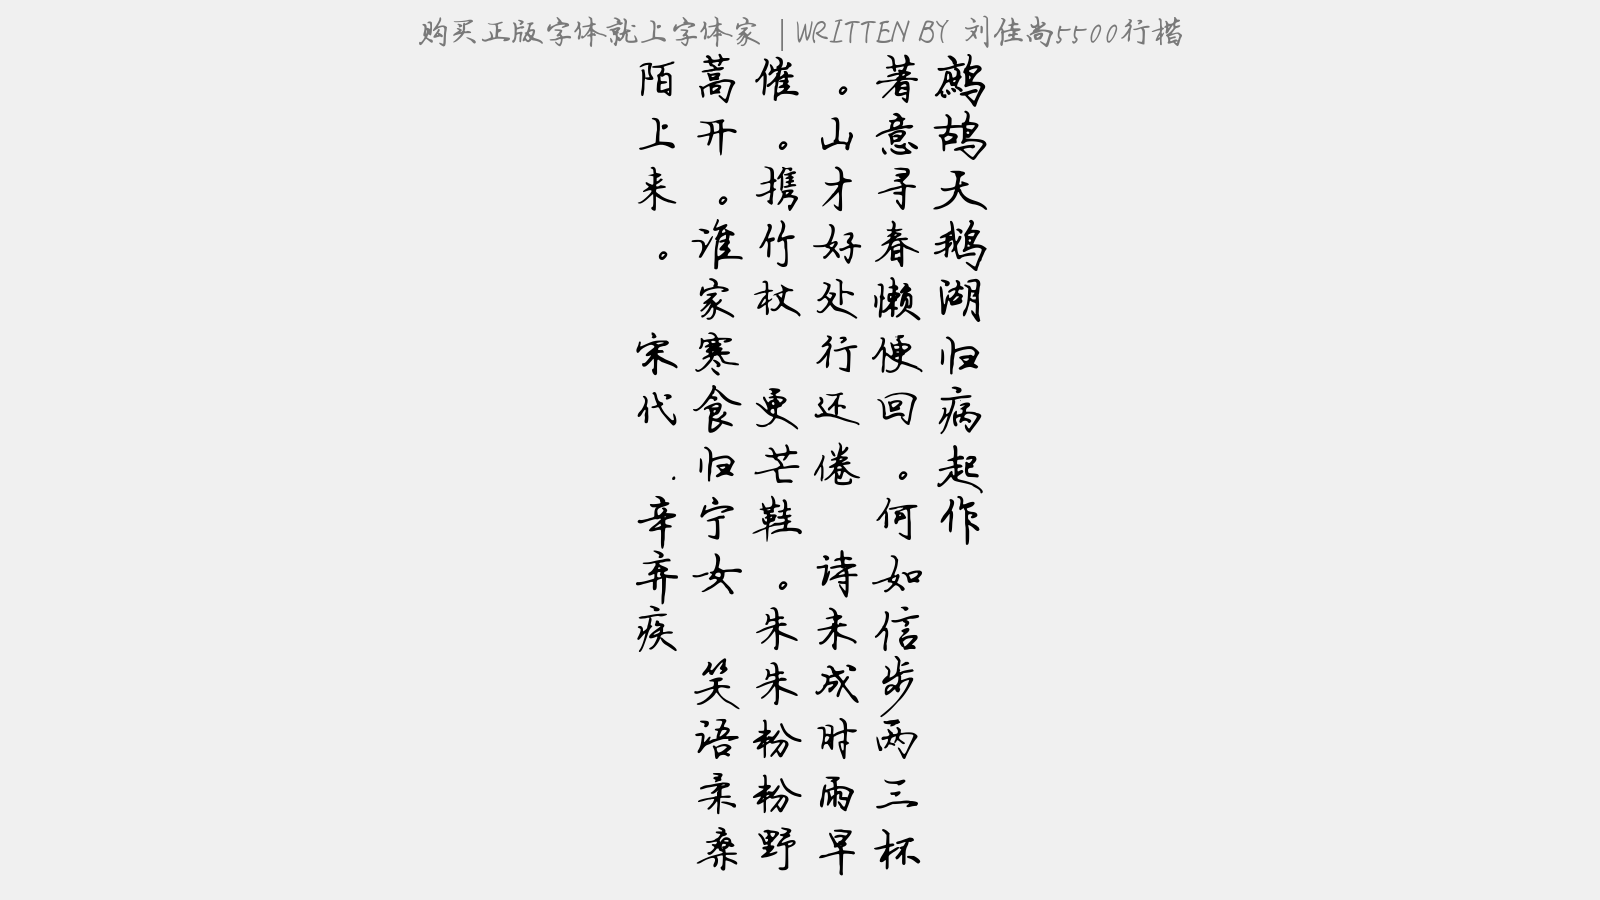 购买正版字体就上字体家 | WRITTEN BY 刘佳尚5500行楷
鹧鸪天鹅湖归病起作
著意寻春懒便回。何如信步两三杯
。山才好处行还倦 诗未成时雨早
催。携竹杖 更芒鞋。朱朱粉粉野
蒿开。谁家寒食归宁女 笑语柔桑
陌上来。 宋代.辛弃疾